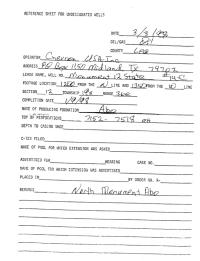 REFERENCE SHEET FOR UNDESIGNATED WELLS
DATE 3/3/98
OIL/GAS
COUNTY Lea
OPERATOR Chevron USA Inc
ADDRESS PO Box 1150 Midland TX 79702
LEASE NAME, WELL NO. Monument 12 State
FOOTAGE LOCATION FROM THE N LINE AND FROM THE LINE
SECTION 12 TOWNSHIP RANGE 36E
COMPLETION DATE 1/9/98
NAME OF PRODUCING FORMATION Abo
TOP OF PERFORATIONS 7152- 7518
DEPTH TO CASING SHOE
C-123 FILED
NAME OF POOL FOR WHICH EXTENSION WAS ASKED
ADVERTISED FOR HEARING CASE NO.
NAME OF POOL FOR WHICH EXTENSION WAS ADVERTISED
PLACED IN BY ORDER NO. R-
REMARKS North Monument Abo